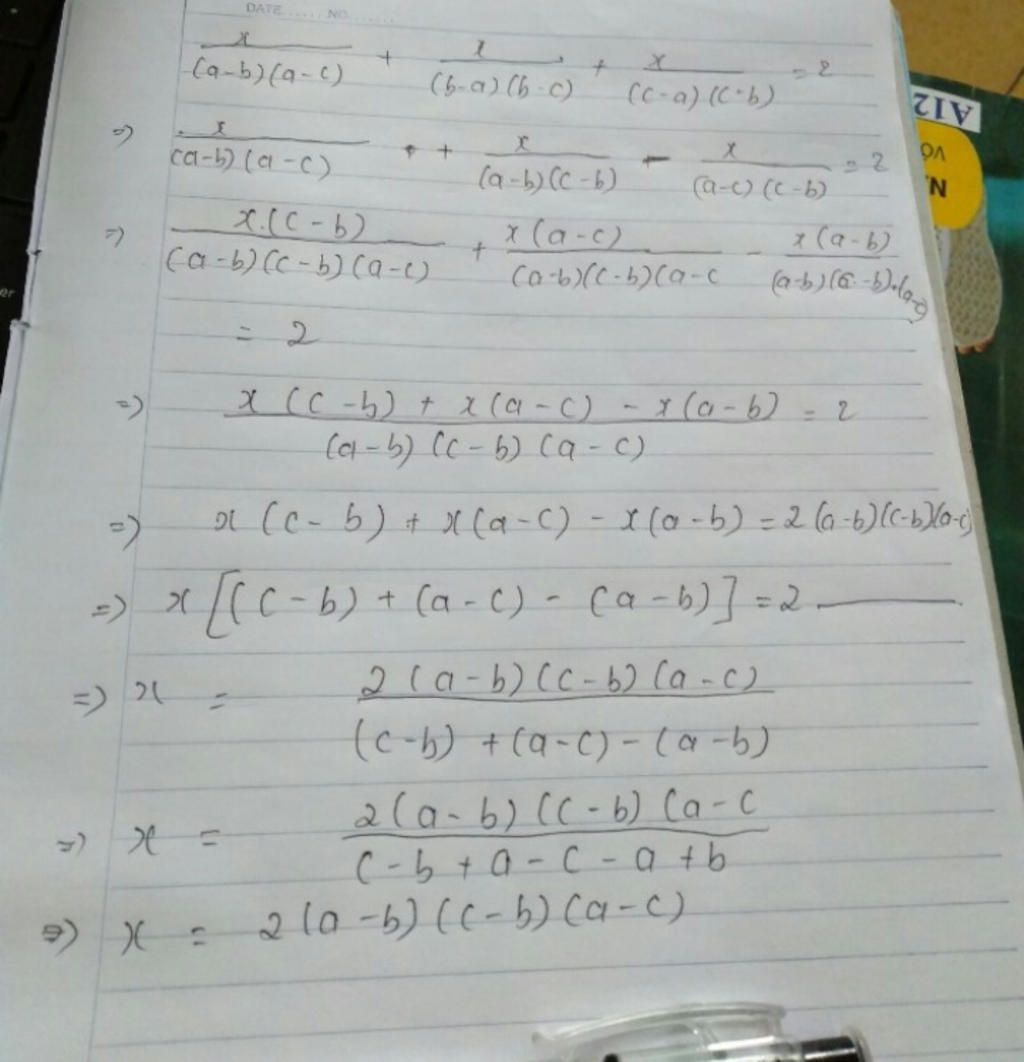 DATE...... NO.......
x/(a-b)(a-c) + x/(b-a)(b-c) + x/(c-a)(c-b) = 2
=> x/(a-b)(a-c) + x/(a-b)(c-b) - x/(a-c)(c-b) = 2
=> x.(c-b)/(a-b)(c-b)(a-c) + x(a-c)/(a-b)(c-b)(a-c - x(a-b)/(a-b)(c-b).(a-c)
= 2
=> x(c-b) + x(a-c) - x(a-b)/(a-b)(c-b)(a-c) = 2
=> x(c-b) + x(a-c) - x(a-b) = 2(a-b)(c-b)(a-c)
=> x[(c-b) + (a-c) - (a-b)] = 2 ———
=> x = 2(a-b)(c-b)(a-c)/(c-b) + (a-c) - (a-b)
=> x = 2(a-b)(c-b)(a-c/c-b+a-c-a+b
=> x = 2(a-b)(c-b)(a-c)
A12
VỞ